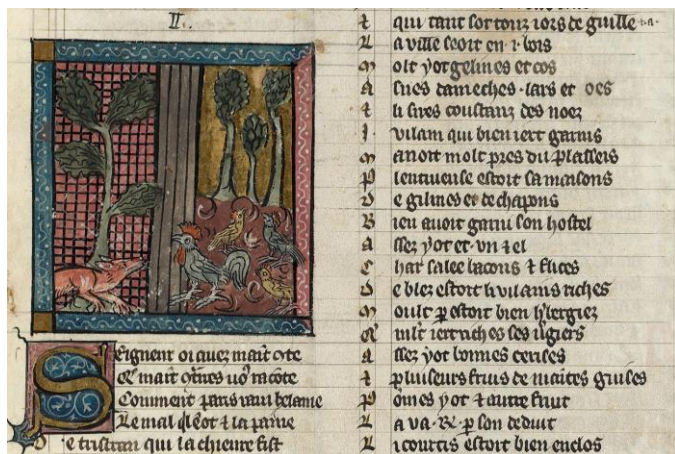 II.
Seignent oi auez mait ɔte
Q̃ mait ɔt̃res uoꝰ racote
Comment paris raui helaine
Le mal q̃l ẽ ot ⁊ la paine
De tristran qui la chieure fist
⁊ qui tant sor touz iors de guille
La uille seoit en .i. bois
Molt yot gelines et cos
Anes &
 iars et oes
⁊ li sires coustanz des noez
I. vilain qui bien iert garnis
Manoit molt pres du plasseis
Plentiueuse estoit sa maisons
De gilines et de chapons
Bien auoit garni son hostel
Assez yot et vn ⁊ el
Char salee bacons ⁊ flices
De blez estoit li vilains riches
Moult ꝑ estoit bien h̓bergiez
Q̃ mlt̃ iert riches ses ũgiers
Assez yot bonnes cerises
⁊ pluiseurs fruis de maites guises
Pomes yot ⁊ autre fruit
La va .R. ꝑ son deduit
Li courtis estoit bien enclos